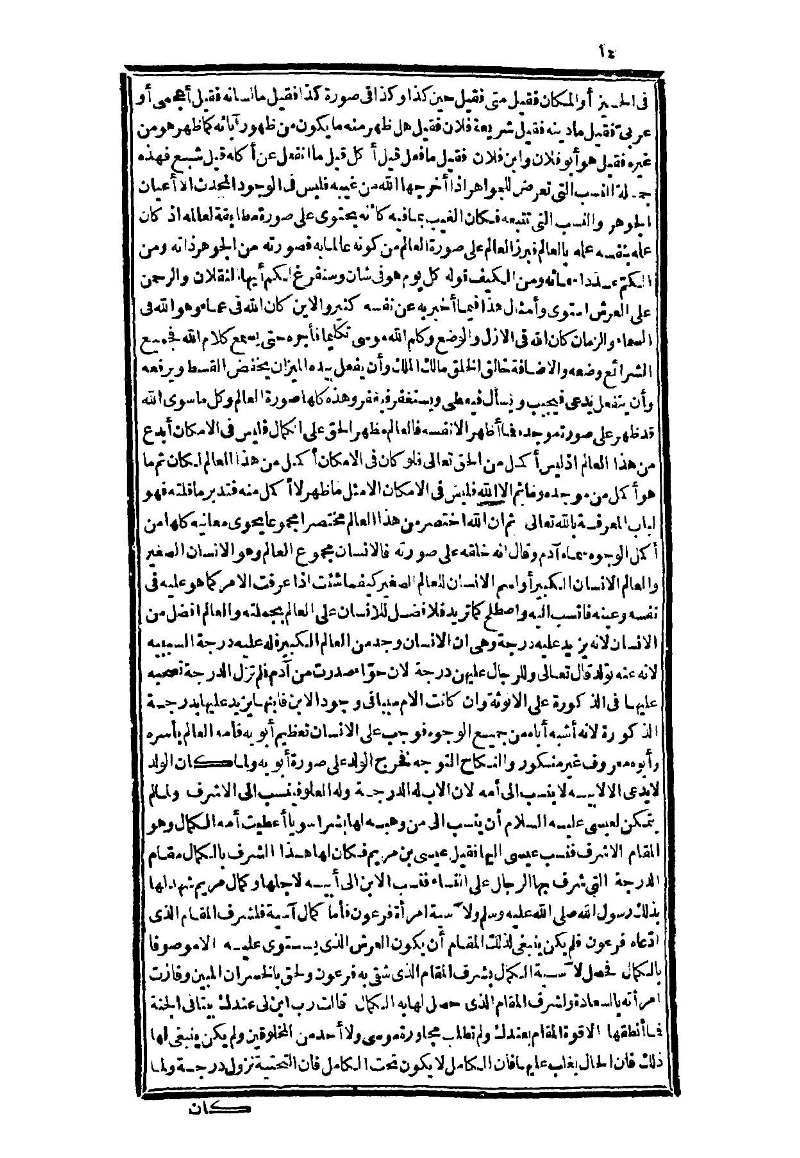 ١٤
فى الحيز أو المكان فقيل متى فقيل حين كذا وكذا فى صورة كذا فقيل ما لسانه فقيل أعجمى أو
عربى فقيل ما دينه فقيل شريعة فلان فقيل هل ظهر منه ما يكون من ظهور آبائه كما ظهر هو من
غيره فقيل هو أبو فلان وابن فلان فقيل ما فعل قيل أكل قيل ما انفعل عن أكله قيل شبع فهذه
جملة النسب التى تعرض للجواهر اذا أخرجها الله من غيبه فليس فى الوجود المحدث الا أعيان
الجوهر والنسب التى تتبعه فكان الغيب بما فيه كانه يحتوى على صورة مطابقة لعالمه اذ كان
علمه بنفسه علمه بالعالم فبرز العالم على صورة العالم من كونه عالما به فصورته من الجوهر ذاته ومن
الكم عدد اسمائه ومن الكيف قوله كل يوم هو فى شان وسنفرغ لكم أيها الثقلان والرحمن
على العرش استوى وأمثال هذا فيما أخبر به عن نفسه كثير والاين كان الله فى عماء وهو الله فى
السماء والزمان كان الله فى الازل والوضع وكلم الله موسى تكليما فأجره حتى يسمع كلام الله فجميع
الشرائع وضعه والاضافة خالق الخلق مالك الملك وأن يفعل بيده الميزان يخفض القسط ويرفعه
وأن ينفعل يدعى فيجيب ويسأل فيعطى ويستغفر فيغفر وهذه كلها صورة العالم وكل ما سوى الله
قد ظهر على صورة موجده فما أظهر الا نفسه فالعالم مظهر الحق على الكمال فليس فى الامكان أبدع
من هذا العالم اذ ليس أكمل من الحق تعالى فلو كان فى الامكان أكمل من هذا العالم لكان ثم ما
هو أكمل من موجده وما ثم الا الله فليس فى الامكان الا مثل ما ظهر لا أكمل منه فتدبر ما قلته فهو
لباب المعرفة بالله تعالى ثم ان الله اختصر من هذا العالم مختصرا مجموعا يحوى معانيه كلها من
أكمل الوجوه سماه آدم وقال انه خلقه على صورته فالانسان مجموع العالم وهو الانسان الصغير
والعالم الانسان الكبير أو اسم الانسان للعالم الصغير كيفما شئت اذا عرفت الامر كما هو عليه فى
نفسه وعينه فانسب اليه واصطلح كما تريد فلا فضل للانسان على العالم بجملته والعالم افضل من
الانسان لانه يزيد عليه درجة وهى ان الانسان وجد من العالم الكبير فله عليه درجة السببيه
لانه عنه تولد قال تعالى وللرجال عليهن درجة لان حواء صدرت من آدم فلم تزل الدرجة تصحبه
عليها فى الذكورة على الانوثة وان كانت الام سببا فى وجود الابن فابنها يزيد عليها بدرجة
الذكورة لانه أشبه أباه من جميع الوجوه فوجب على الانسان تعظيم أبويه فأمه العالم بأسره
وأبوه معروف غير منكور والنكاح التوجه فخرج الولد على صورة أبويه ولما كان الولد
لا يدعى الا لابيه لا ينسب الى أمه لان الاب له الدرجة وله العلو فينسب الى الاشرف ولما لم
يتمكن لعيسى عليه السلام أن ينسب الى من وهبه لها بشرا سويا أعطيت أمه الكمال وهو
المقام الاشرف فنسب عيسى اليها فقيل عيسى بن مريم فكان لها هذا الشرف بالكمال مقام
الدرجة التى شرف بها الرجال على النساء فنسب الابن الى أبيه لاجلها وكمال مريم شهد لها
بذلك رسول الله صلى الله عليه وسلم ولآسية امرأة فرعون فأما كمال آسية فلشرف المقام الذى
ادعاه فرعون فلم يكن ينبغى لذلك المقام أن يكون العرش الذى يستوى عليه الا موصوفا
بالكمال فحصل لآسية الكمال بشرف المقام الذى شقى به فرعون ولحق بالخسران المبين وفازت
امرأته بالسعادة ولشرف المقام الذى حصل لها به الكمال قالت رب ابن لى عندك بيتا فى الجنة
فما أنطقها الا قوة المقام بعندك ولم تطلب مجاورة موسى ولا أحد من المخلوقين ولم يكن ينبغى لها
ذلك فان الحال يغلب عليها فان الكامل لا يكون تحت الكامل فان التحتية نزول درجة ولما
كان